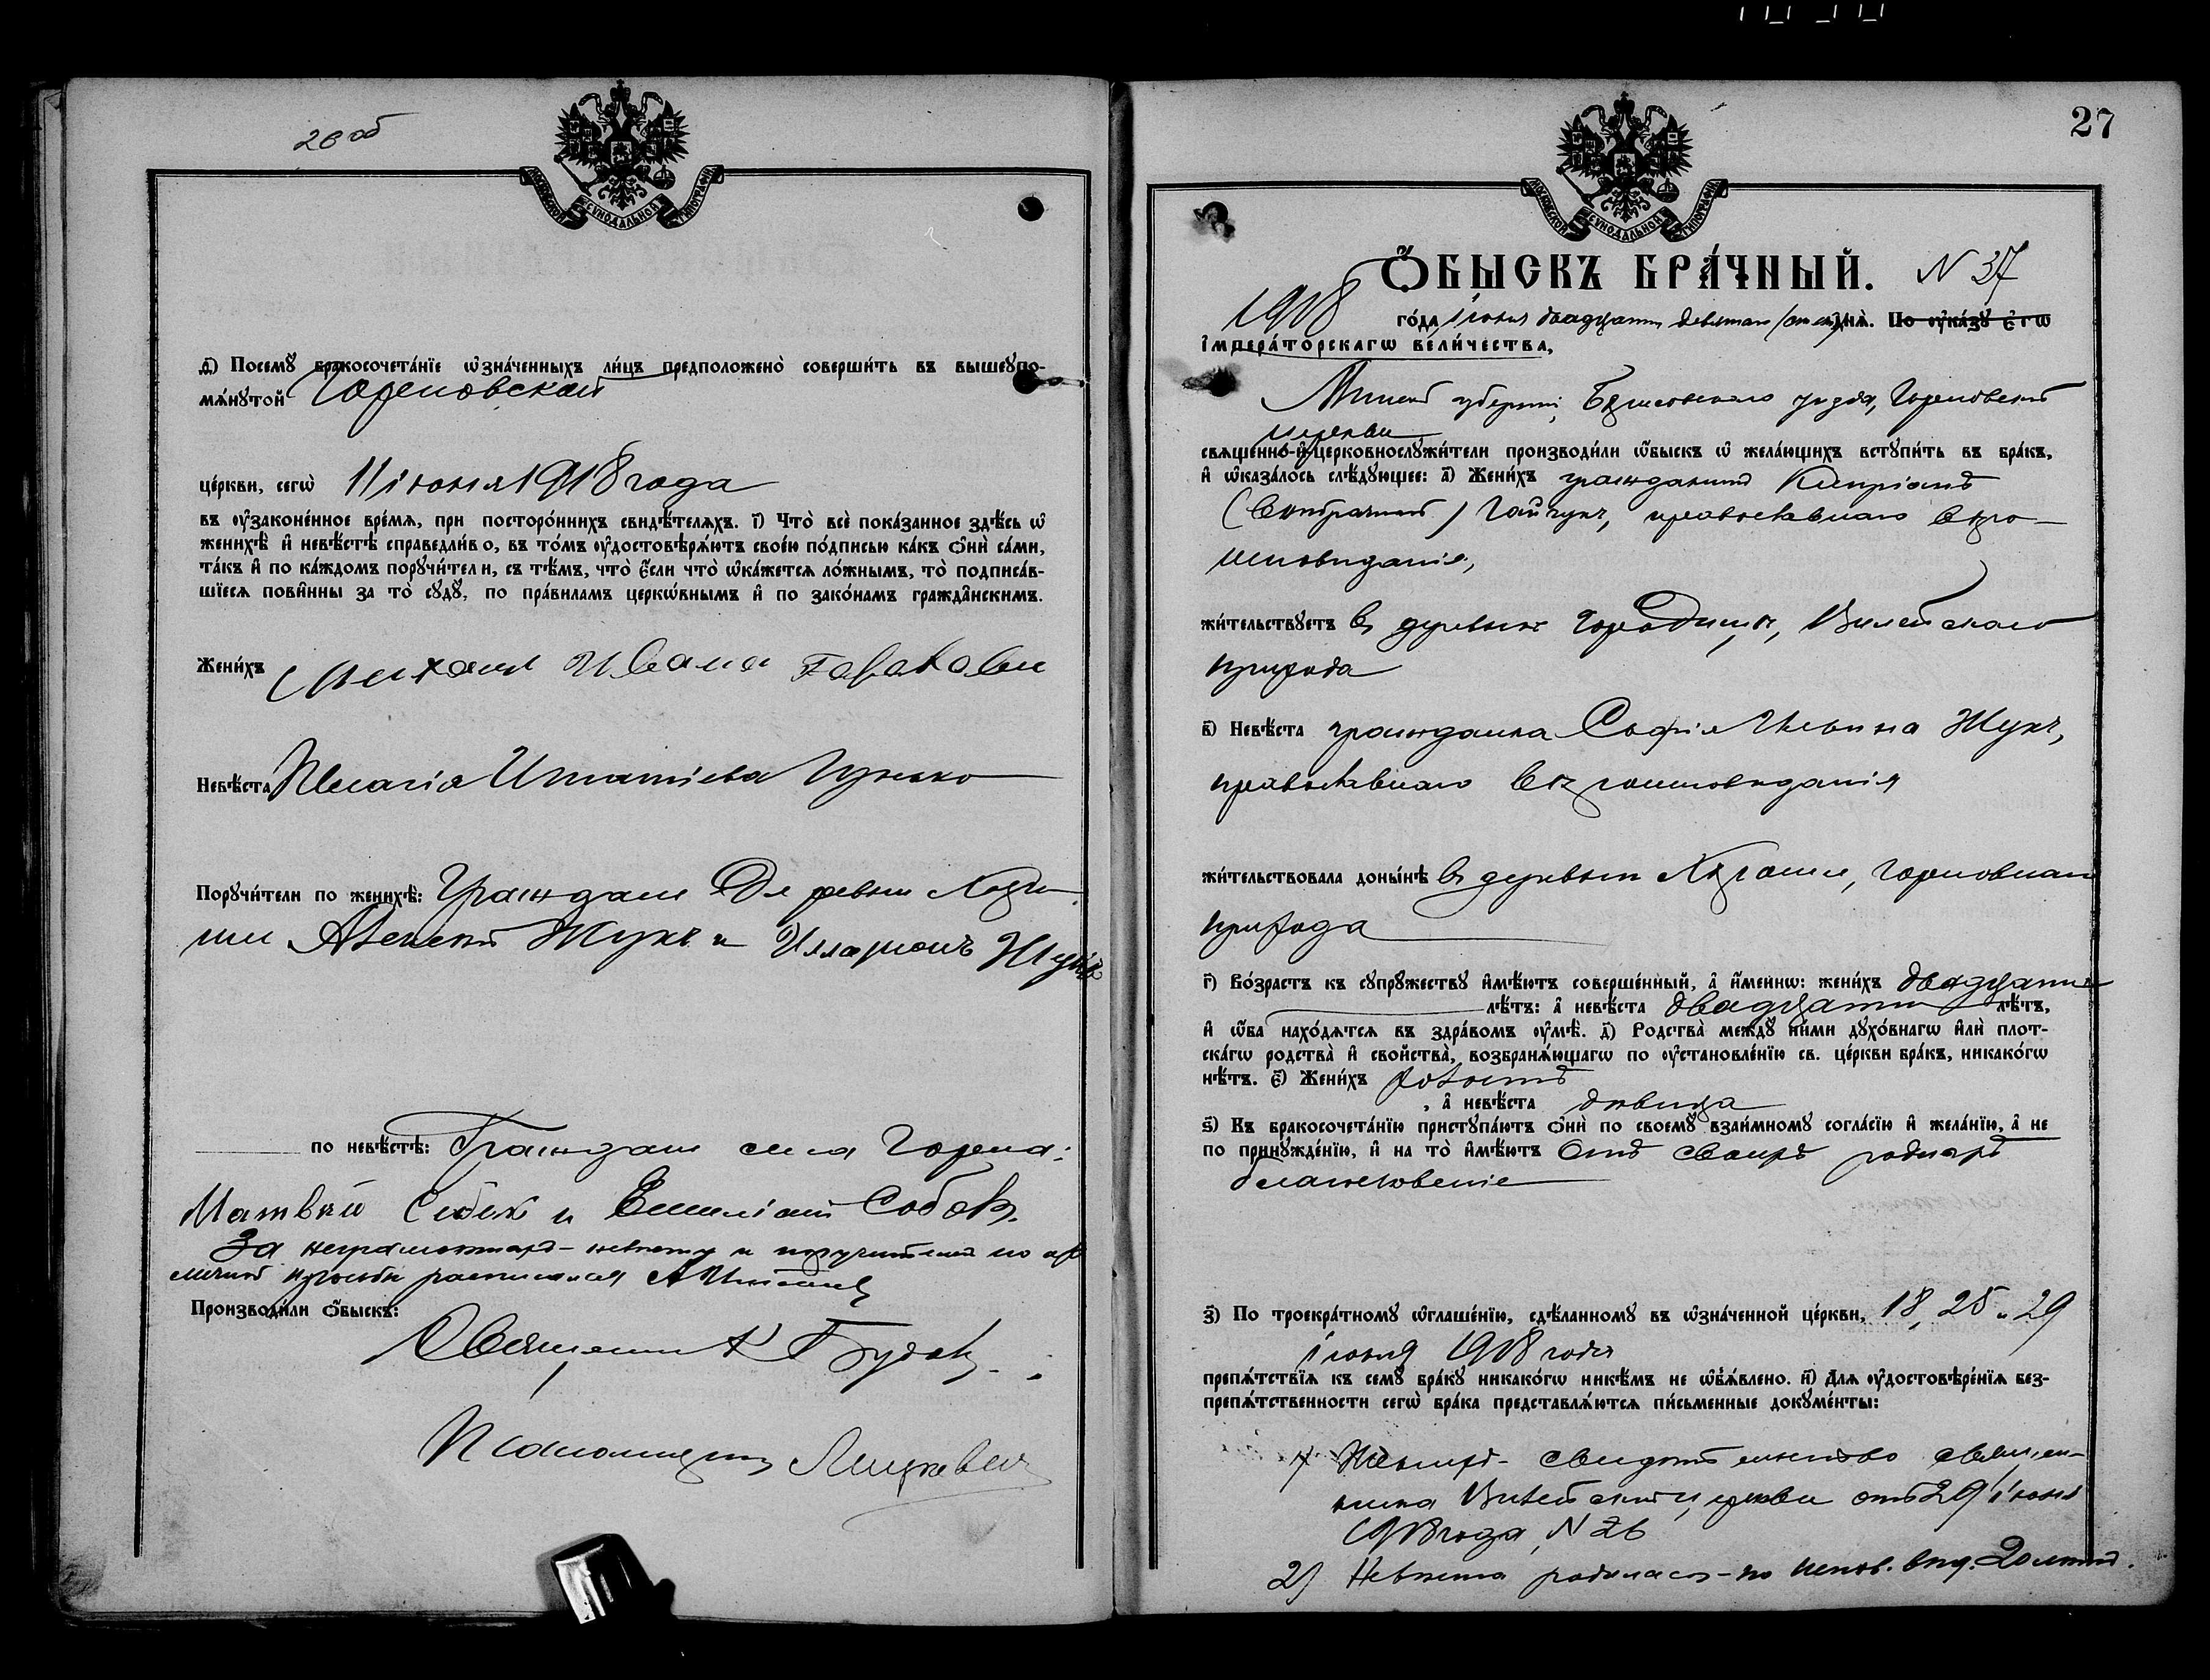 26 об
МОСКОВСКОЙ СѴНОДАЛЬНОЙ ТИПОГРАФІИ
ѳ҃) Посемꙋ̀ бракосочета́нїе ѡ҆зна́ченныхъ ли́цъ предположено̀ соверши́ть въ вышеꙋпо-
мѧ́нꙋтой Гореновской
це́ркви, сегѡ̀ 11 іюня 1918 года
въ ᲂу҆законе́нное вре́мѧ, при посторо́ннихъ свидѣ́телѧхъ. і҃) Что̀ всѐ пока́занное здѣ́сь ѡ҆
женихѣ̀ и҆ невѣ́стѣ справедли́во, въ то́мъ ᲂу҆достовѣрѧ́ютъ свое́ю по́дписью ка́къ ѻ҆нѝ са́ми,
та́къ и҆ по ка́ждомъ порꙋчи́тели, съ тѣ́мъ, что̀ є҆́сли что̀ ѡ҆ка́жетсѧ ло́жнымъ, то̀ подписа́в-
шїесѧ пови́нны за то̀ сꙋдꙋ̀, по пра́виламъ церкѡ́внымъ и҆ по зако́намъ гражда́нскимъ.
Жени́хъ Михаил Ивана
Невѣ́ста Пелагія Игнатіева
Порꙋчи́тели по женихѣ̀: Граждане Деревни
Алексей Жукъ и Илларионъ Жукъ
по невѣ́стѣ: Граждане села Горена:
Матвѣй и Емилiанъ
За неграмотныхъ невѣсту и поручителей по их
личной просьбе расписался
Производи́ли ѻ҆́быскъ:
Священник
Псаломщикъ
27
МОСКОВСКОЙ СѴНОДАЛЬНОЙ ТИПОГРАФІИ
Ѻ҆́БЫСКЪ БРА́ЧНЫЙ. N 37
1918 го́да, Іюня двадцать девятаго днѧ̀. По ᲂу҆ка́зꙋ є҆гѡ̀
і҆мпера́торскагѡ вели́чества,
Минской губерніи, Борисовского уѣзда, Гореновской
церкви
свѧще́нно-и҆ церковнослꙋжи́тели производи́ли ѻ҆́быскъ ѡ҆ жела́ющихъ встꙋпи́ть въ бра́къ,
и҆ ѡ҆каза́лось слѣ́дꙋющее: а҃) Жени́хъ гражданинъ Кипріанъ
Гайдукъ, православнаго вѣро-
исповѣданія,
жи́тельствꙋетъ въ деревне Городище, Вилейского
прихода
в҃) Невѣ́ста гражданка Софія Ильина Жукъ,
православнаго вѣроисповѣданія
жи́тельствовала доны́нѣ въ деревне
прихода
г҃) Во́зрастъ къ сꙋпрꙋ́жествꙋ и҆мѣ́ютъ соверше́нный, а҆ и҆́меннѡ: жени́хъ двадцати
лѣ́тъ: а҆ невѣ́ста двадцати лѣ́тъ,
и҆ ѻ҆́ба нахо́дѧтсѧ въ здра́вомъ ᲂу҆мѣ̀. д҃) Родства̀ междꙋ̀ ни́ми дꙋхо́внагѡ и҆лѝ плот-
ска́гѡ родства̀ и҆ сво́йства̀, возбранѧ́ющагѡ по ᲂу҆становле́нїю св. це́ркви бра́къ, никако́гѡ
нѣ́тъ. є҃) Жени́хъ холостъ
, а҆ невѣ́ста дѣвица
ѕ҃) Къ бракосочета́нїю пристꙋпа́ютъ ѻ҆нѝ по своемꙋ̀ взаи́мномꙋ согла́сїю и҆ жела́нїю, а҆ не
по принꙋжде́нїю, и҆ на то̀ и҆мѣ́ютъ отъ своихъ родныхъ
благословеніе
з҃) По троекра́тномꙋ ѡ҆глаше́нїю, сдѣ́ланномꙋ въ ѡ҆зна́ченной це́ркви, 18, 25 и 29
іюня 1918 года
препѧ́тствїѧ къ семꙋ̀ бра́кꙋ никако́гѡ никѣ́мъ не ѡ҆бъѧ́влено. и҃) Длѧ ᲂу҆достовѣре́нїѧ без-
препѧ́тственности сегѡ̀ бра́ка представлѧ́ютсѧ пи́сьменные докꙋме́нты:
1) Жениха - свидѣтельство священ-
ника церкви отъ 29 іюня
1918 года, N 26
2) Невѣста родилась - по испов. вѣд. 20 лѣтъ.